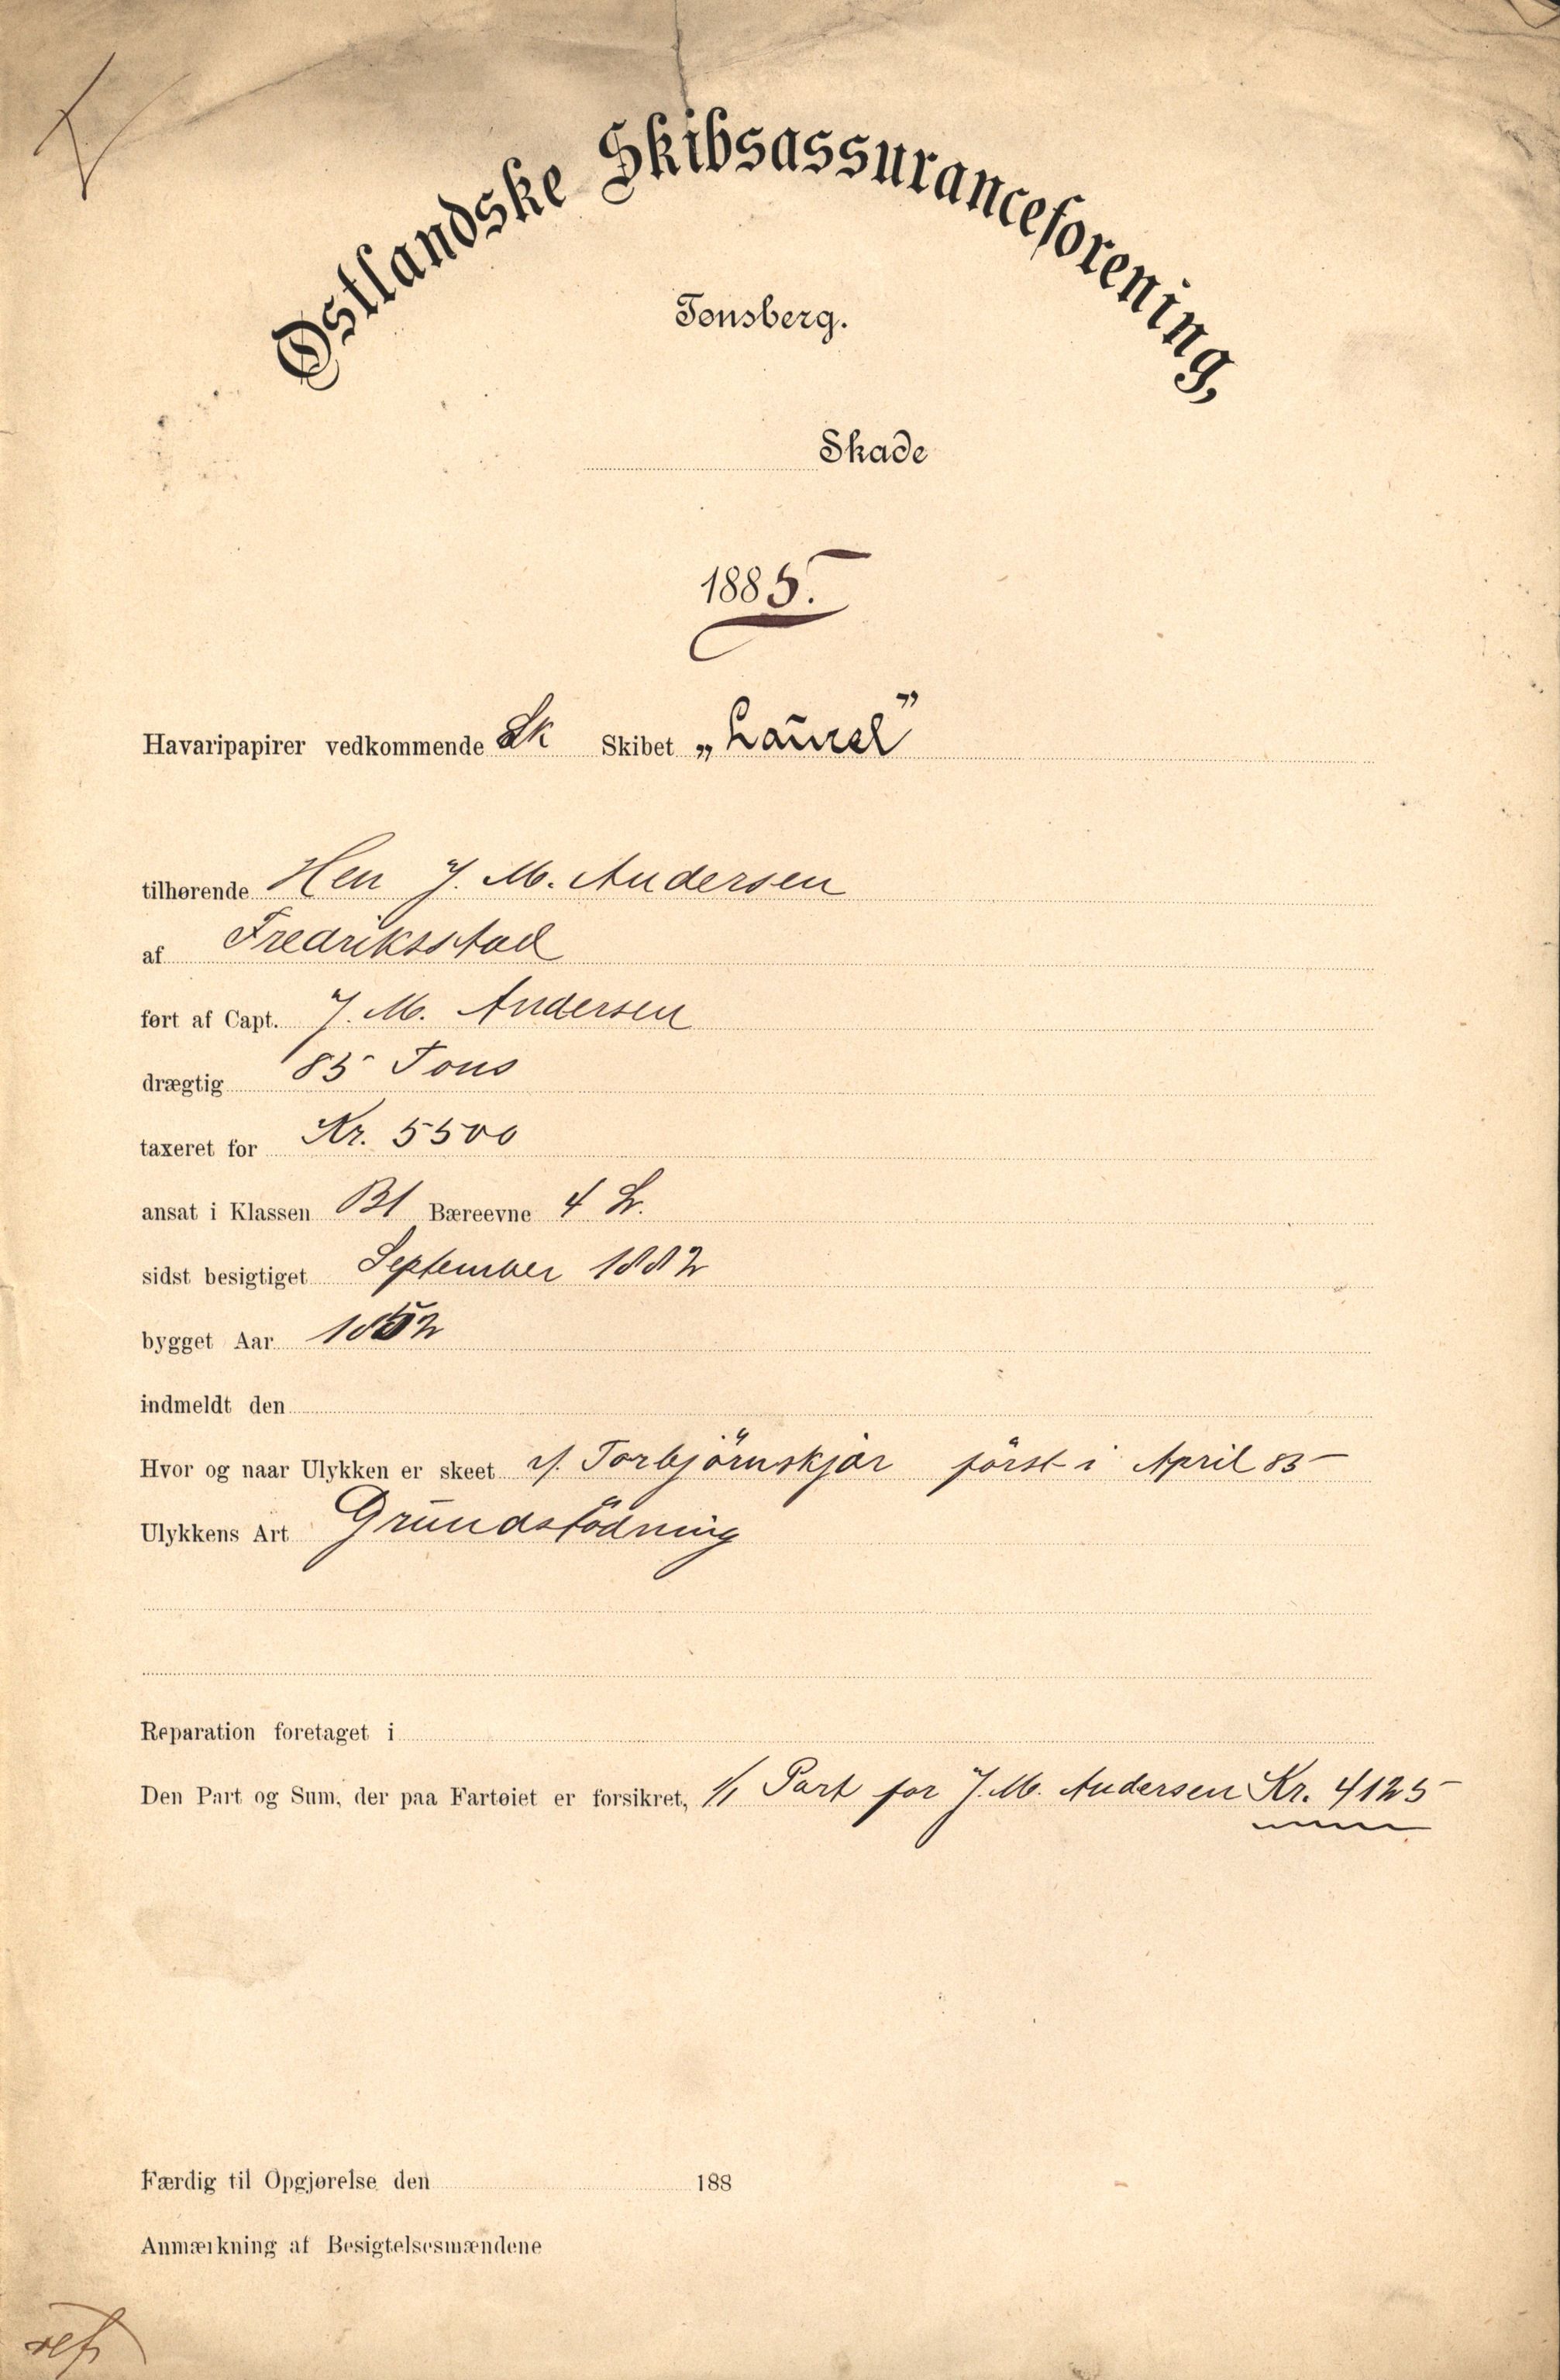 Østlandske Skibsassuranceforening,
Tønsberg.
Skade
1885.
Havaripapirer vedkommende Sk Skibet „Laurel”
tilhørende Herr J. M. Andersen
af Fredriksstad
ført af Capt. J. M. Andersen
drægtig 85 Tons
taxeret for Kr. 5500
ansat i Klassen B1 Bæreevne 4 Sr.
sidst besigtiget September 1882
bygget Aar 1852
indmeldt den
Hvor og naar Ulykken er skeet v/. Torbjörnskjær först i April 85
Ulykkens Art Grundstödning
Reparation foretaget i
Den Part og Sum, der paa Fartøiet er forsikret, 1/1 Part for J. M. Andersen Kr. 4125
Færdig til Opgjørelse den 188
Anmærkning af Besigtelsesmændene